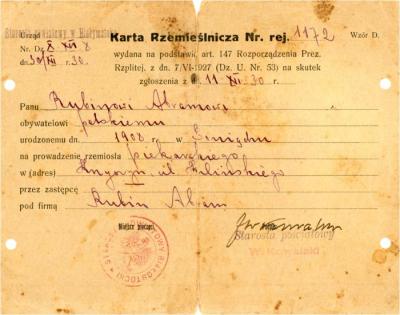 Urząd Starostwo Powiatowy w Białymstoku
Nr. Dz. 8 XII 8
dn. 30/XII r. 30.
Karta Rzemieślnicza Nr. rej. 1172
Wzór D.
wydana na podstawie art. 147 Rozporządzenia Prez.
Rzplitej, z dn. 7/VI-1927 (Dz. U. Nr. 53) na skutek
zgłoszenia z 11 XII 30 r.
Panu Rubinowi Abramowi
obywatelowi polskiemu
urodzonemu dn. 1908 r. w
na prowadzenie rzemiosła piekarskiego
w (adres) Knyszyn, ul.
przez zastępcę
pod firmą Rubin Abram
Miejsce pieczęci
Starosta powiatowy